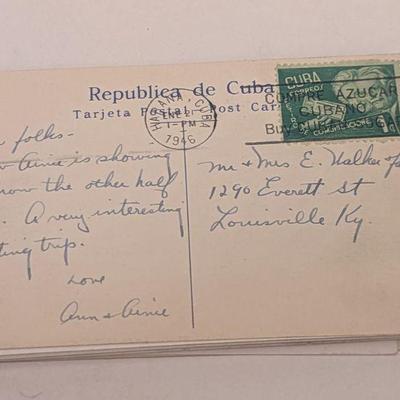 Republica de Cuba
Tarjeta Postal - Post Car
HABANA, CUBA
1-PM
1946
CUBA
CORREOS
COMPRE AZUCAR
CUBANO
BUY
folks-
is showing
now the other half
A very interesting
ting trip.
Love
Ann & Arnie
Mr & Mrs E. Walker
1290 Everett St
Louisville Ky.